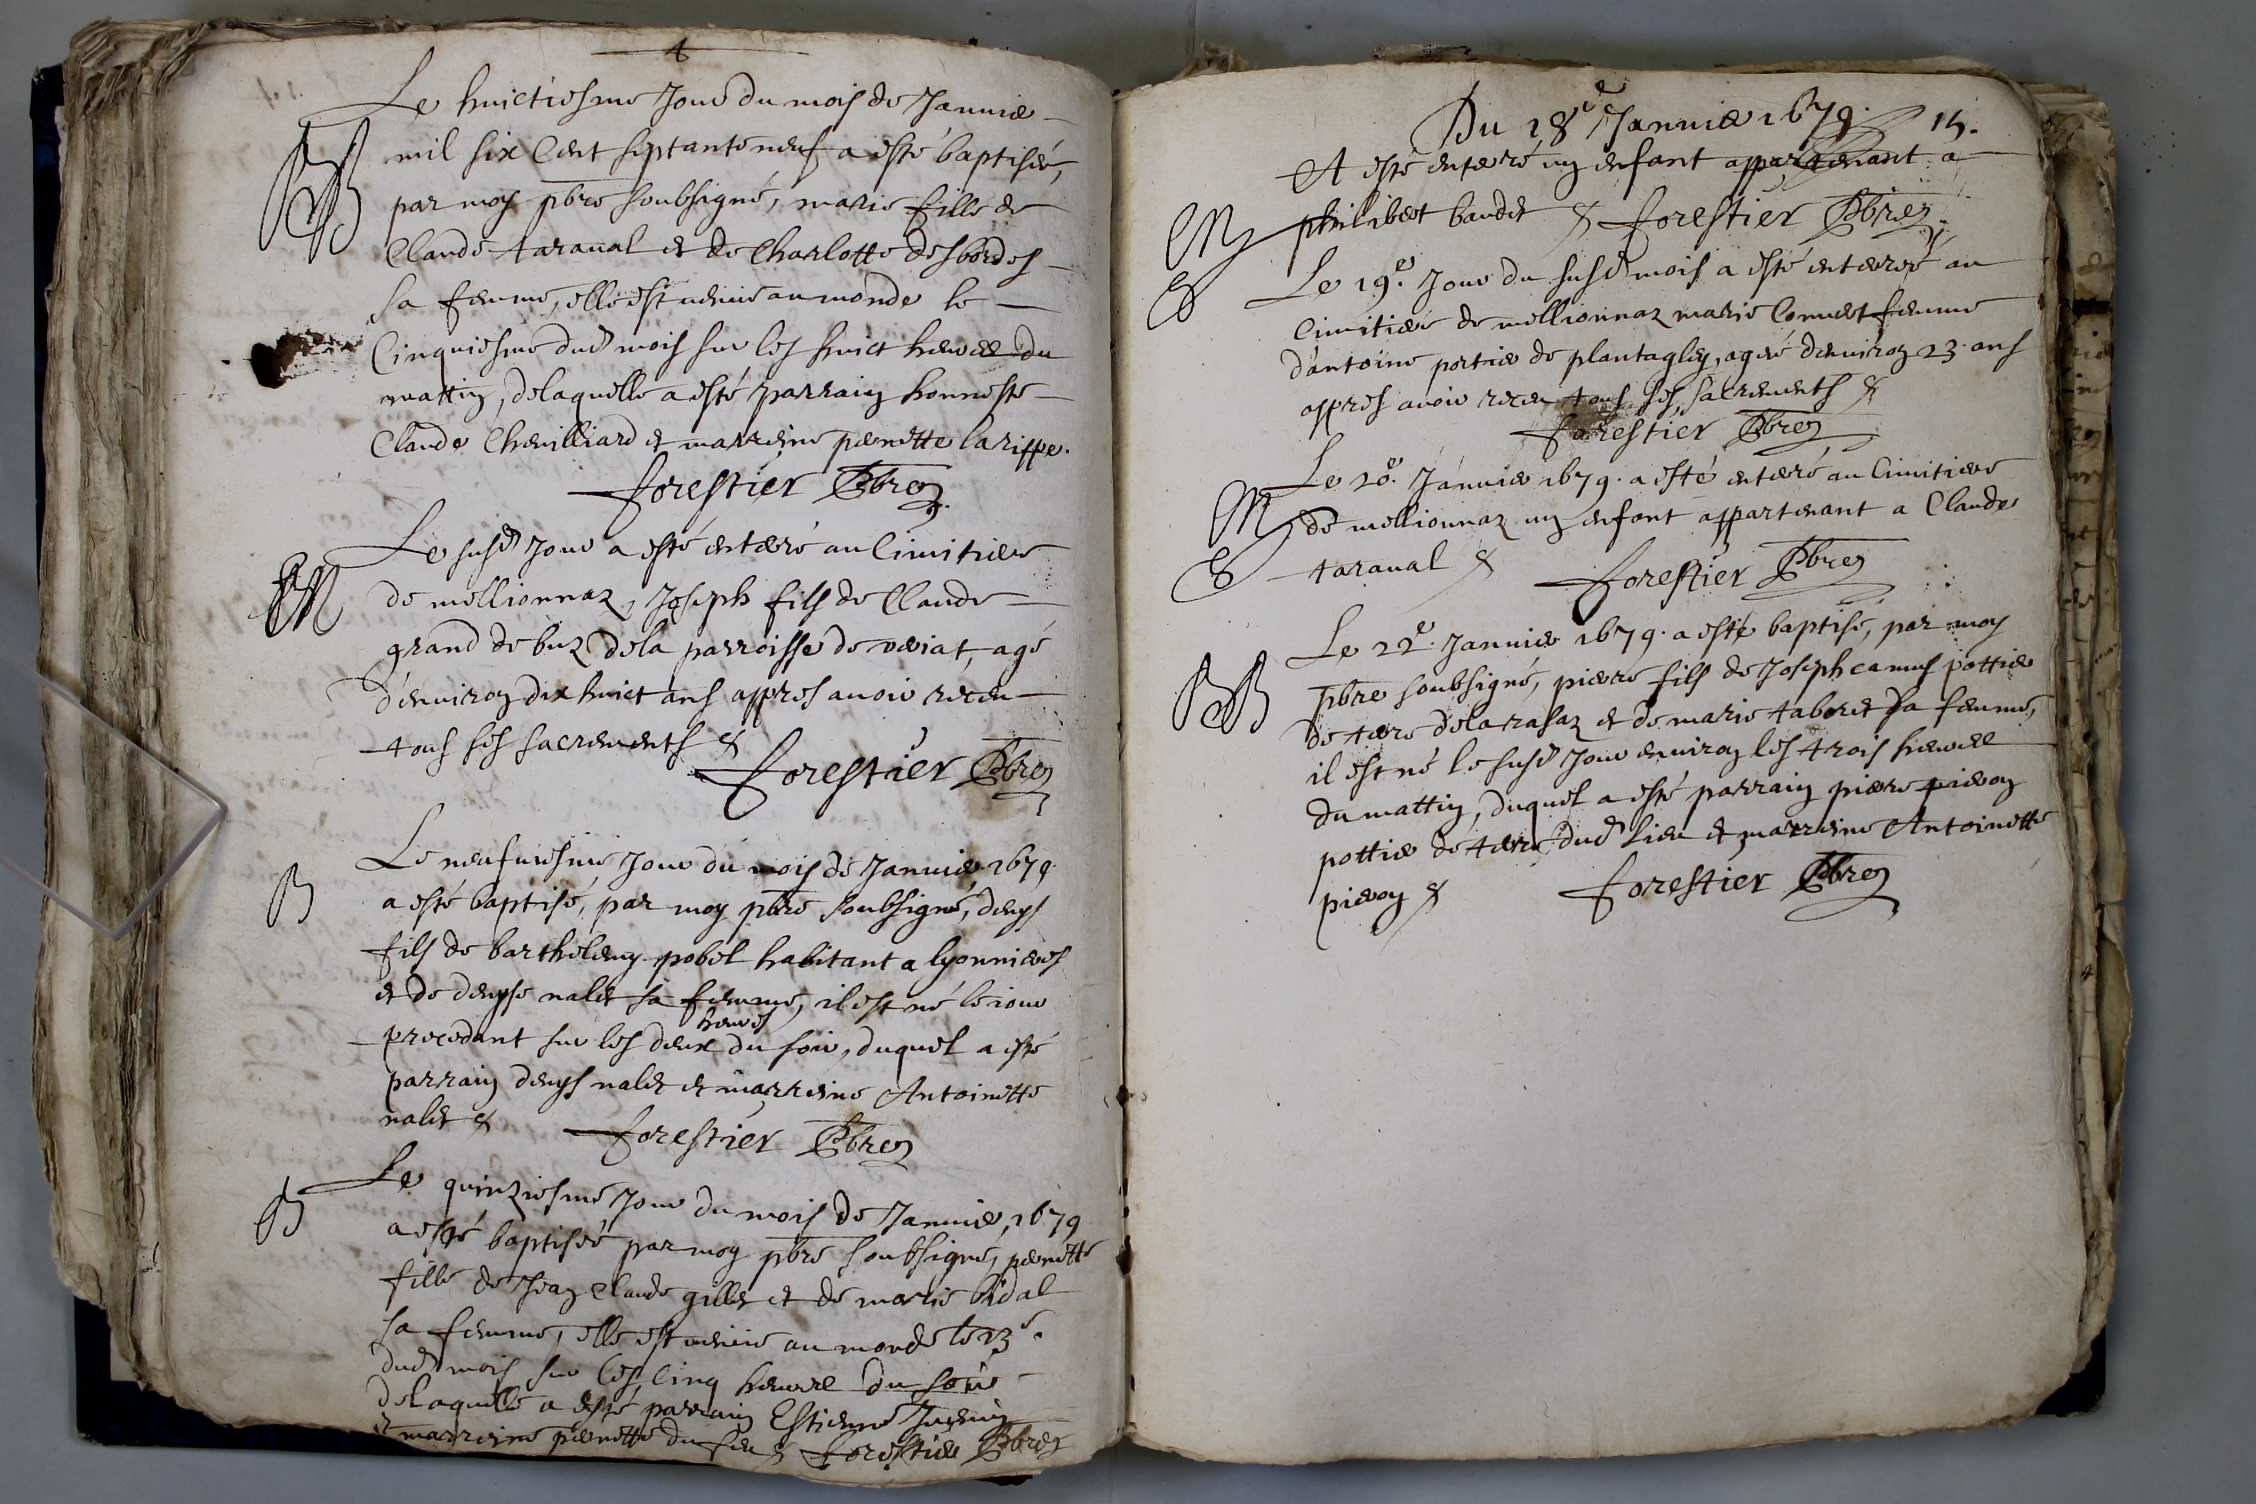 Le huictiesme Jour du mois de Januier
mil six Cent septante neuf a esté baptisée,
BB
par moy pbre soubsigné, marie fille de
Claude taraual et de Charlotte desbordes
sa femme, elle est uenue au monde le
Cinquiesme dud mois sur les huict heures du
mattin, delaquelle a esté parrain honneste
Claude Cheuilliard et marreine pernette lariffe.
forestier Pbre
Le susd Jour a esté enterré au Cimitiere
M
de mellionnaz, Joseph fils de Claude
grand de buz dela parroisse de veriat, agé
d'enuiron dix huict ans appres auoir receu
tous ses sacrements &
forestier Pbre
Le neufuiesme Jour du mois de Januier 1679.
B
a esté baptisé, par moy pbre soubsigné, denys
fils de barthelemy pobel habitant a lyonnieres
et de denyse nalet sa femme, il est né le iour
heures
precedant sur les deux du soir, duquel a esté
parrain denys nalet et marreine Antoinette
nalet & forestier Pbre
Le quinziesme Jour du mois de Januier, 1679
B
a esté baptisée par moy pbre soubsigné, pernette
fille de Jean Claude gillet et de marie bidal
sa femme, elle est uenue au monde le 13e.
dud mois sur les Cinq heures du soir
delaquelle a esté parrain Estienne
et marreine pernette du feu & forestier Pbre
Du 18e Januier 1679. 15.
A esté enterré un enfant appartenant a
M philibert baudet & forestier Pbre
E
Le 19e. Jour du susd mois a esté enterreé au
Cimitiere de mellionnaz marie Conuert femme
d'antoine portier de plantagley, ageé denuiron 23. ans
appres auoir receu tous ses sacrements &
forestier Pbre
Le 20e. Januier 1679. a esté enterré au Cimitiere
M de mellionnaz un enfant appartenant a Claude
E taraual & forestier Pbre
Le 22e. Januier 1679. a esté baptisé, par moy
BB
pbre soubsigné, pierre fils de Joseph camus pottier
de terre delarasaz et de marie taboret sa femme,
il est né le susd Jour enuiron les trois heures
du mattin, duquel a esté parrain pierre pieron
pottier de terre dud lieu et marreine Antoinette
pieron & forestier Pbre